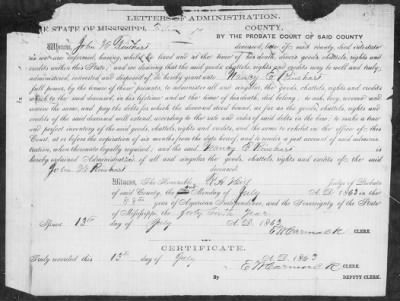 LETTERS OF ADMINISTRATION.
THE STATE OF MISSISSIPPI, COUNTY,
BY THE PROBATE COURT OF SAID COUNTY
Whereas, John W Rinehart deceased, late of said county died intestate
as we are informed, having, whilst he lived and at the time of his death divers goods, chattels, rights and
credits within this State; and we desiring that the said goods, chattels, rights and credits may be well and truly,
administered, converted and disposed of, do hereby grant unto Nancy E Rinehart
full power, by the tenor of these presents, to administer all and singular, the goods, chattels, rights and credits
which to the said deceased, in his lifetime and at the time of his death, did belong; to ask, levy, recover and
receive the same, and pay the debts for which the deceased stood bound, so far as the goods, chattels, rights and
credits of the said deceased will extend, according to the rate and order of said debts in the law; to make a true
and perfect inventory of the said goods, chattels, rights and credits, and the same to exhibit in the office of this
Court, at or before the expiration of six months from the date hereof, and to render a just account of said adminis-
tration, when thereunto legally required; and the said Nancy E Rinehart is
hereby ordained Administratrix of all and singular the goods, chattels, rights and credits of the said
John W Rinehart deceased
Witness, The Honorable Judge of Probate
of said County, the 2nd Monday of July A.D. 1863 in this
88th year of American Independence, and the Sovereignty of the State
of Mississippi, the forty sixth Year
Issued 13th day of July A.D. 1863
E W Carmack CLERK.
CERTIFICATE.
Truly recorded this 13th day of July A.D. 1863
E W Carmack CLERK.
By DEPUTY CLERK.